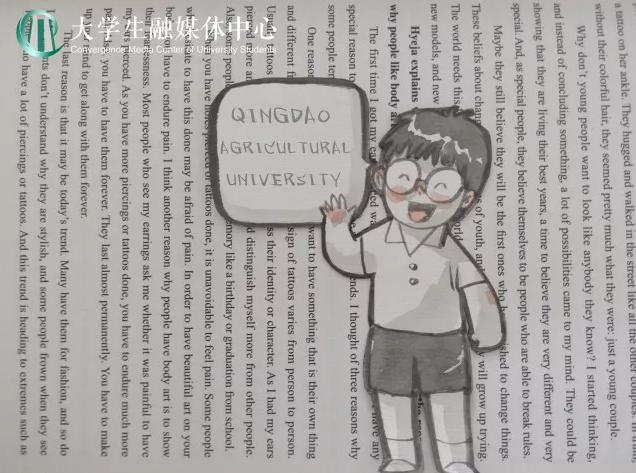 大学生融媒体中心
Convergence Media Center of University Students
QINGDAO
AGRICULTURAL
UNIVERSITY
a tattoo on her ankle. They hugged and walked in the street like all the other couples.
without their colorful hair, they seemed pretty much what they were: just a young couple.
Why don't young people want to look like anybody they know? I started thinking,
and instead of concluding something, a lot of possibilities came to my mind. They could be
showing that they are living their best years, a time to believe they are very different and very
special. And, as special people, they believe themselves to be people who are able to break rules.
Maybe they still believe they will be the first ones who to change things.
These beliefs about of youth, and will grow up trying.
The world needs this
new models, and new
Hyeja explains
why people like body
The first time I got my have any
special reason to I thought of three reasons why
some people
One reason want to have something that is their own thing
and different of tattoos varies from person to person.
tattoos their identity or character. As I had my ears
pierced more distinguish myself more from other people.
Also, some people memory like a birthday or graduation from school.
you have more pierced or tattoos done, it is unavoidable to feel pain. Some people
to have this done may be afraid of pain. In order to have beautiful art on your
have to endure pain. I think another reason why people have body art is to show
their fearlessness. Most people who see my earrings ask me whether it was painful to have
pierced. As you have more piercings or tattoos done, you have to endure much more
you have to have them forever. They last almost permanently. You have to make
up mind to get along with them forever.
The last reason is that it may be today's trend. Many have them for fashion, and so do
don't understand why they are stylish, and some people frown when they see
have a lot of piercings or tattoos. And this trend is heading to extremes such as